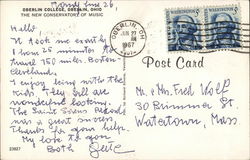 Monday June 26
OBERLIN COLLEGE, OBERLIN, OHIO
THE NEW CONSERVATORY OF MUSIC
Hello,
It took me exactly
1 hour 25 minutes to
travel 750 miles. Boston
Cleveland.
I enjoy being with the
kids. They all are
wonderful looking.
The Saint Saens
was a great success
Thanks for your help.
My love to you
Both
OBERLIN, OH
JUN 27
PM
1967
Post Card
Mr. & Mrs. Fred Wolf
30 Summer St
Watertown, Mass